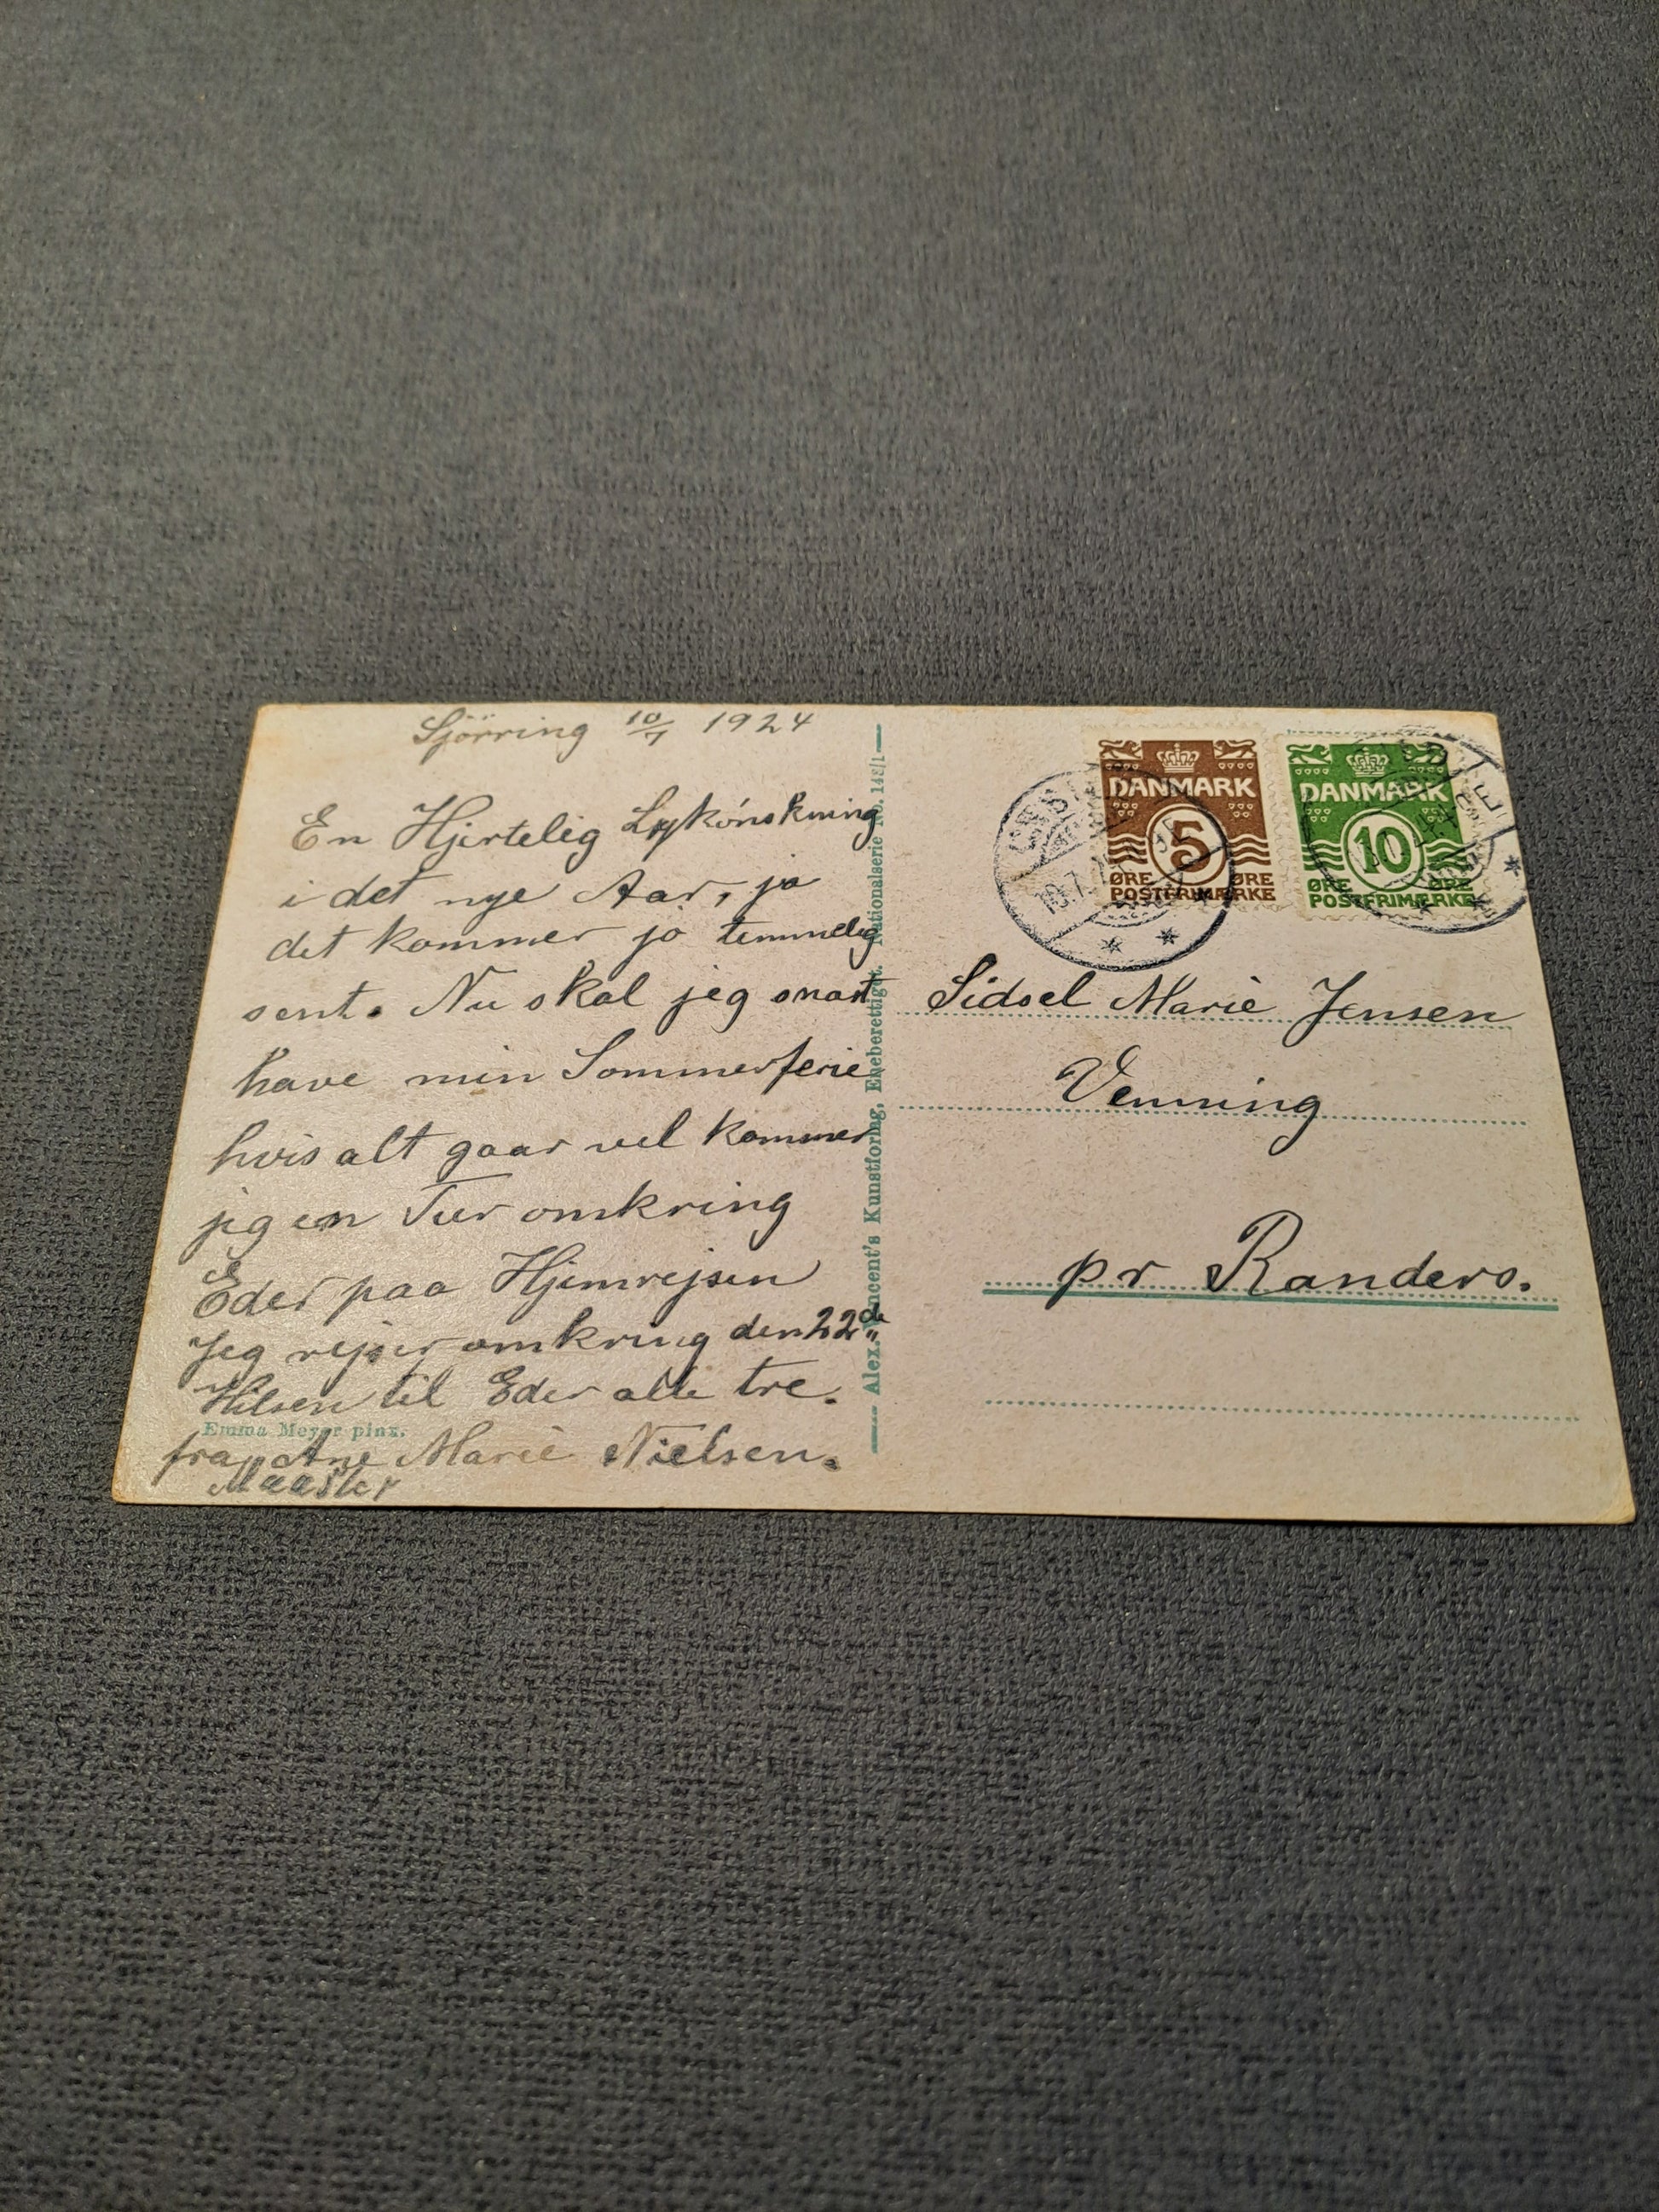 Sjörring 10/7 1924
En Hjertelig Lykønskning
i det nye Aar, ja
det kommer jo temmelig
sent. Nu skal jeg snart
have min Sommerferie
hvis alt gaar vel kommer
jeg en Tur omkring
Eder paa Hjemrejsen
Jeg rejser omkring den 22de
Hilsen til Eder alle tre.
Emma Meyer pinx.
fra Ane Marie Nielsen.
Alex. Vincent's Kunstforlag, Eneberettiget. Nationalserie No. 148/1
DANMARK
5
ØRE ØRE
POSTFRIMÆRKE
DANMARK
10
ØRE ØRE
POSTFRIMÆRKE
10.7
Sidsel Marie Jensen
Venning
pr Randers.